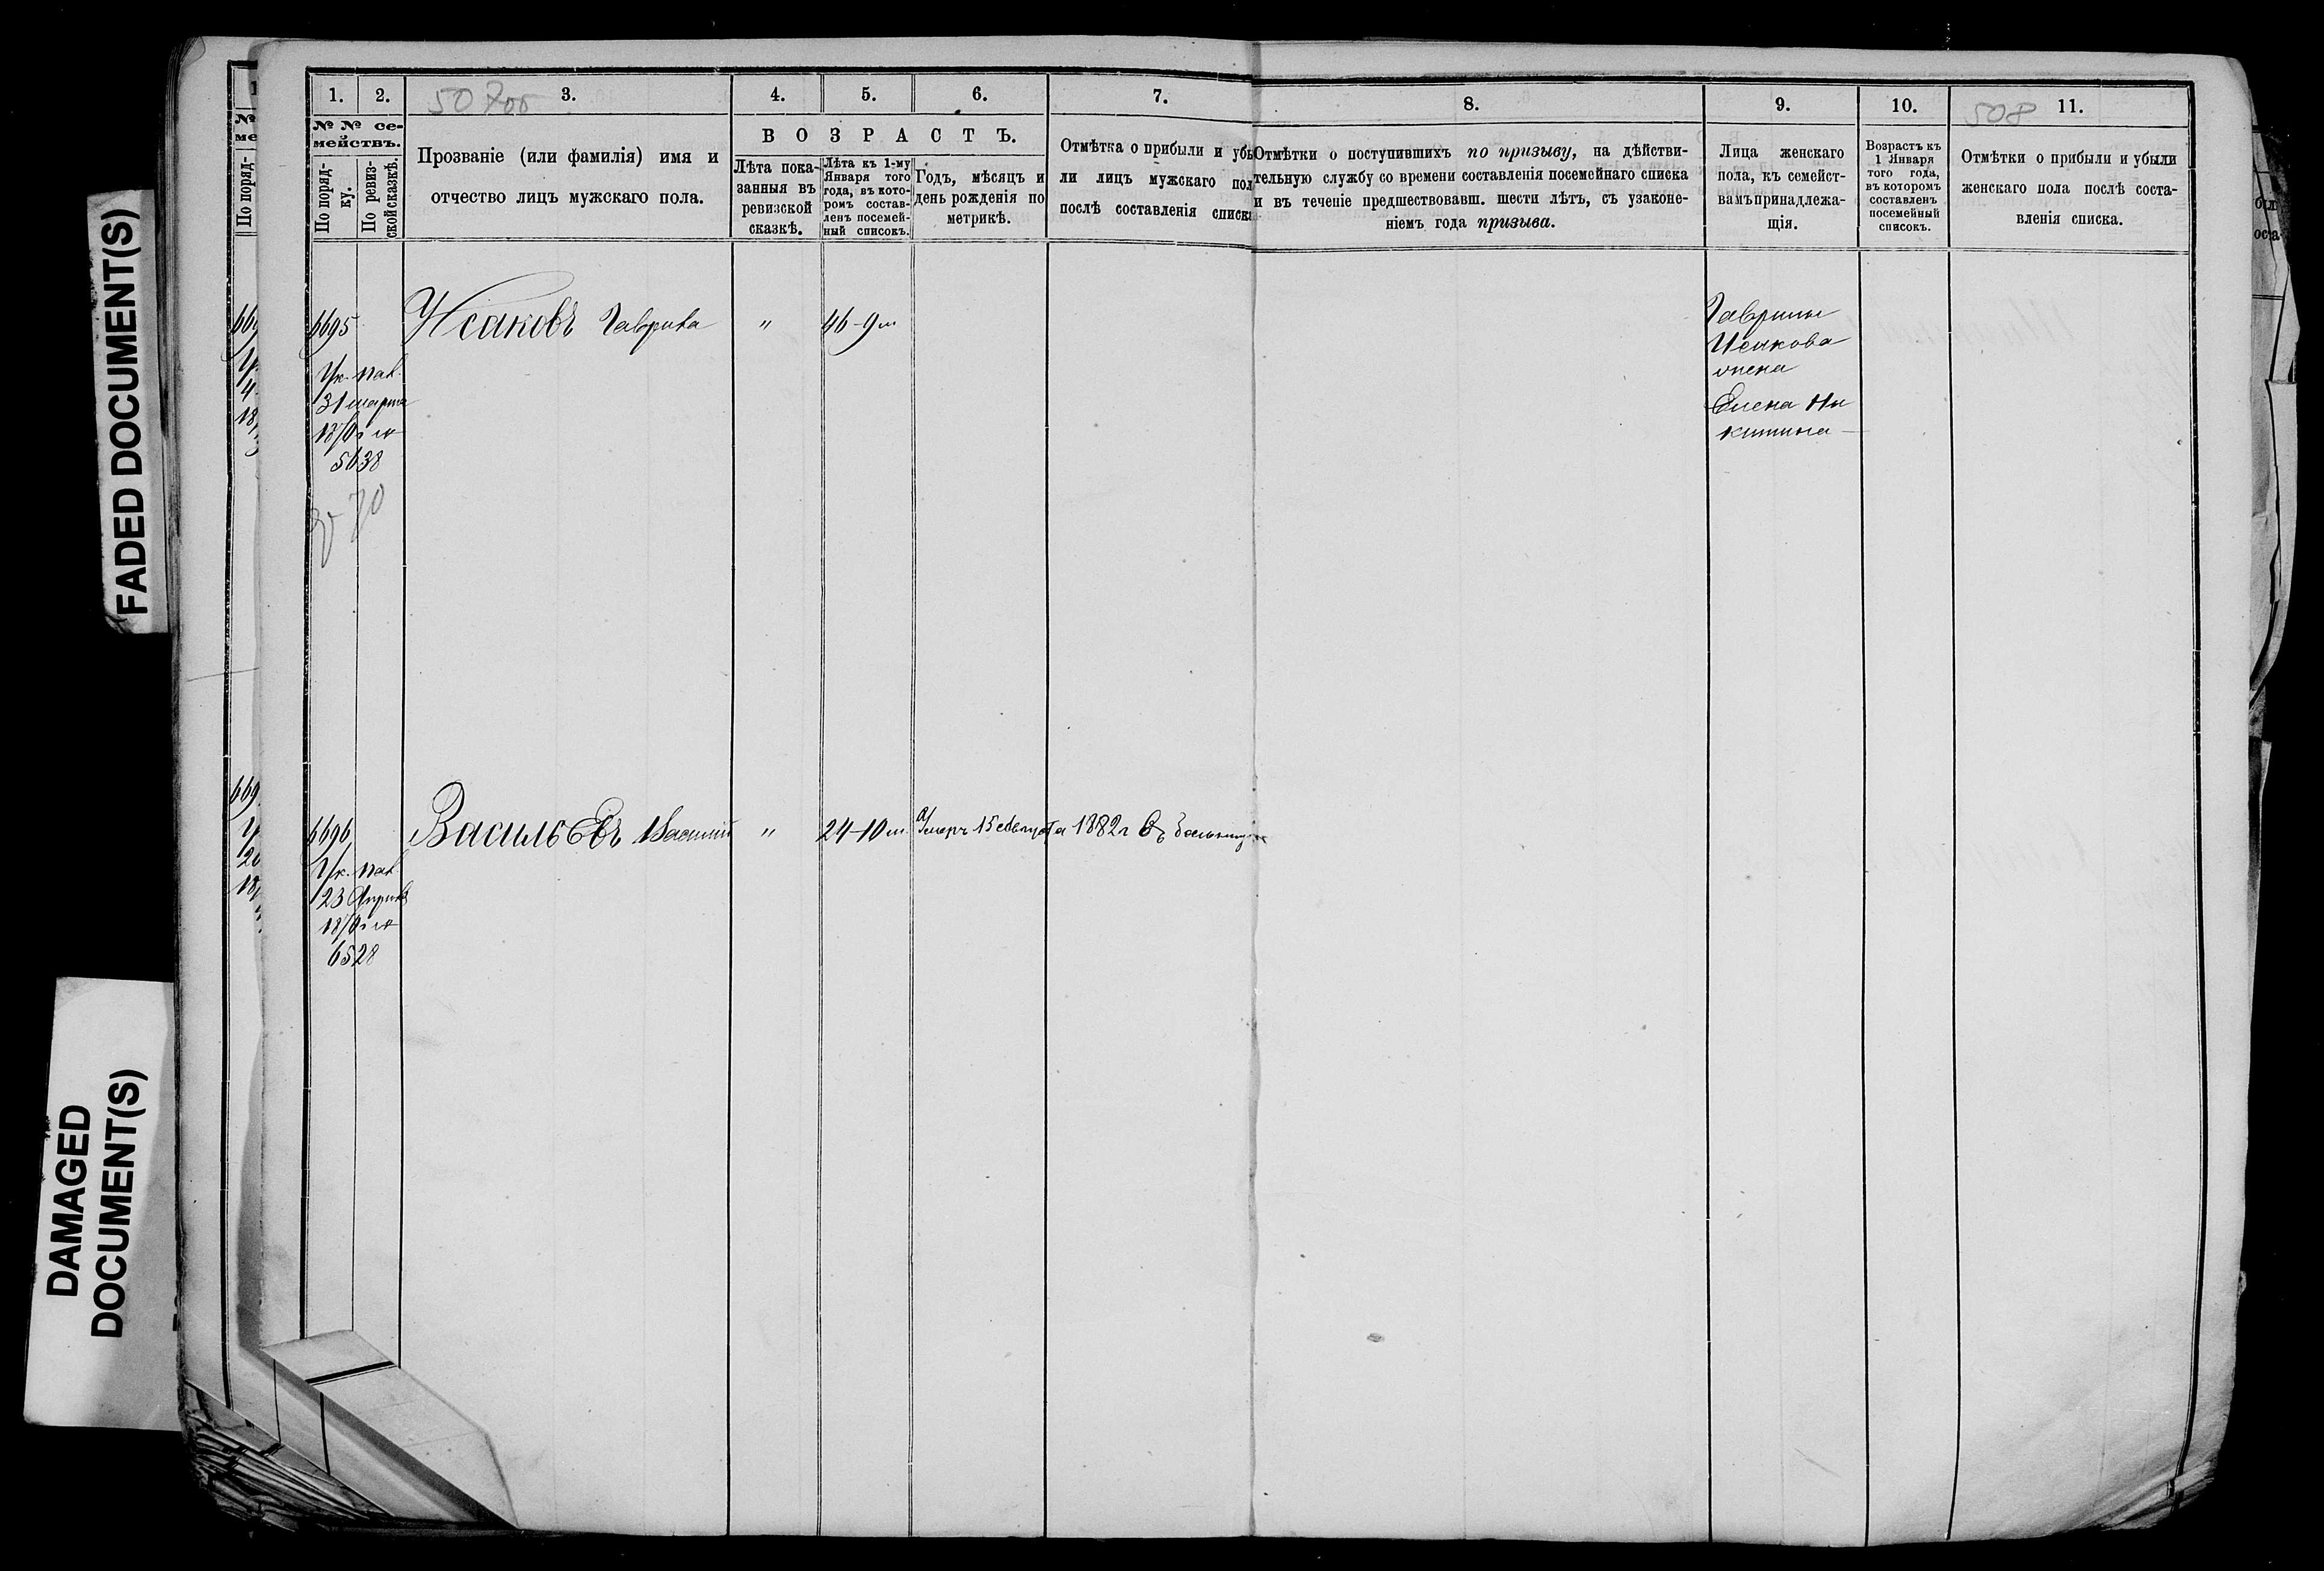 FADED DOCUMENT(S)
DAMAGED
DOCUMENT(S)
1. 2. 3. 4. 5. 6. 7. 8. 9. 10. 11.
508
№ № се-
мействъ.
По поряд-
ку.
По ревиз-
ской сказкѣ.
Прозваніе (или фамилія) имя и
отчество лицъ мужскаго пола.
ВОЗРАСТЪ.
Лѣта пока-
занныя въ
ревизской
сказкѣ.
Лѣта къ 1-му
Января того
года, въ кото-
ромъ состав-
ленъ посемей-
ный списокъ.
Годъ, мѣсяцъ и
день рожденія по
метрикѣ.
Отмѣтка о прибыли и убы
ли лицъ мужскаго пол
послѣ составленія списк
Отмѣтки о поступившихъ по призыву, на дѣйстви-
тельную службу со времени составленія посемейнаго списка
и въ теченіе предшествовавш. шести лѣтъ, съ узаконе-
ніемъ года призыва.
Лица женскаго
пола, къ семейст-
вамъ принадлежа-
щія.
Возрастъ къ
1 Января
того года,
въ которомъ
составленъ
посемейный
списокъ.
Отмѣтки о прибыли и убыли
женскаго пола послѣ соста-
вленія списка.
6695 Исаковъ Гаврила " 46-9 м
Ук. пал.
31 марта
1870 г №
5638
70
Гаврилы
Исакова
жена
Елена Ни
китина
6696 Васильевъ Василий " 24-10 м. Умеръ 15 августа 1882 г въ больницѣ
Ук. пал.
23 Апрѣля
1870 г №
6528